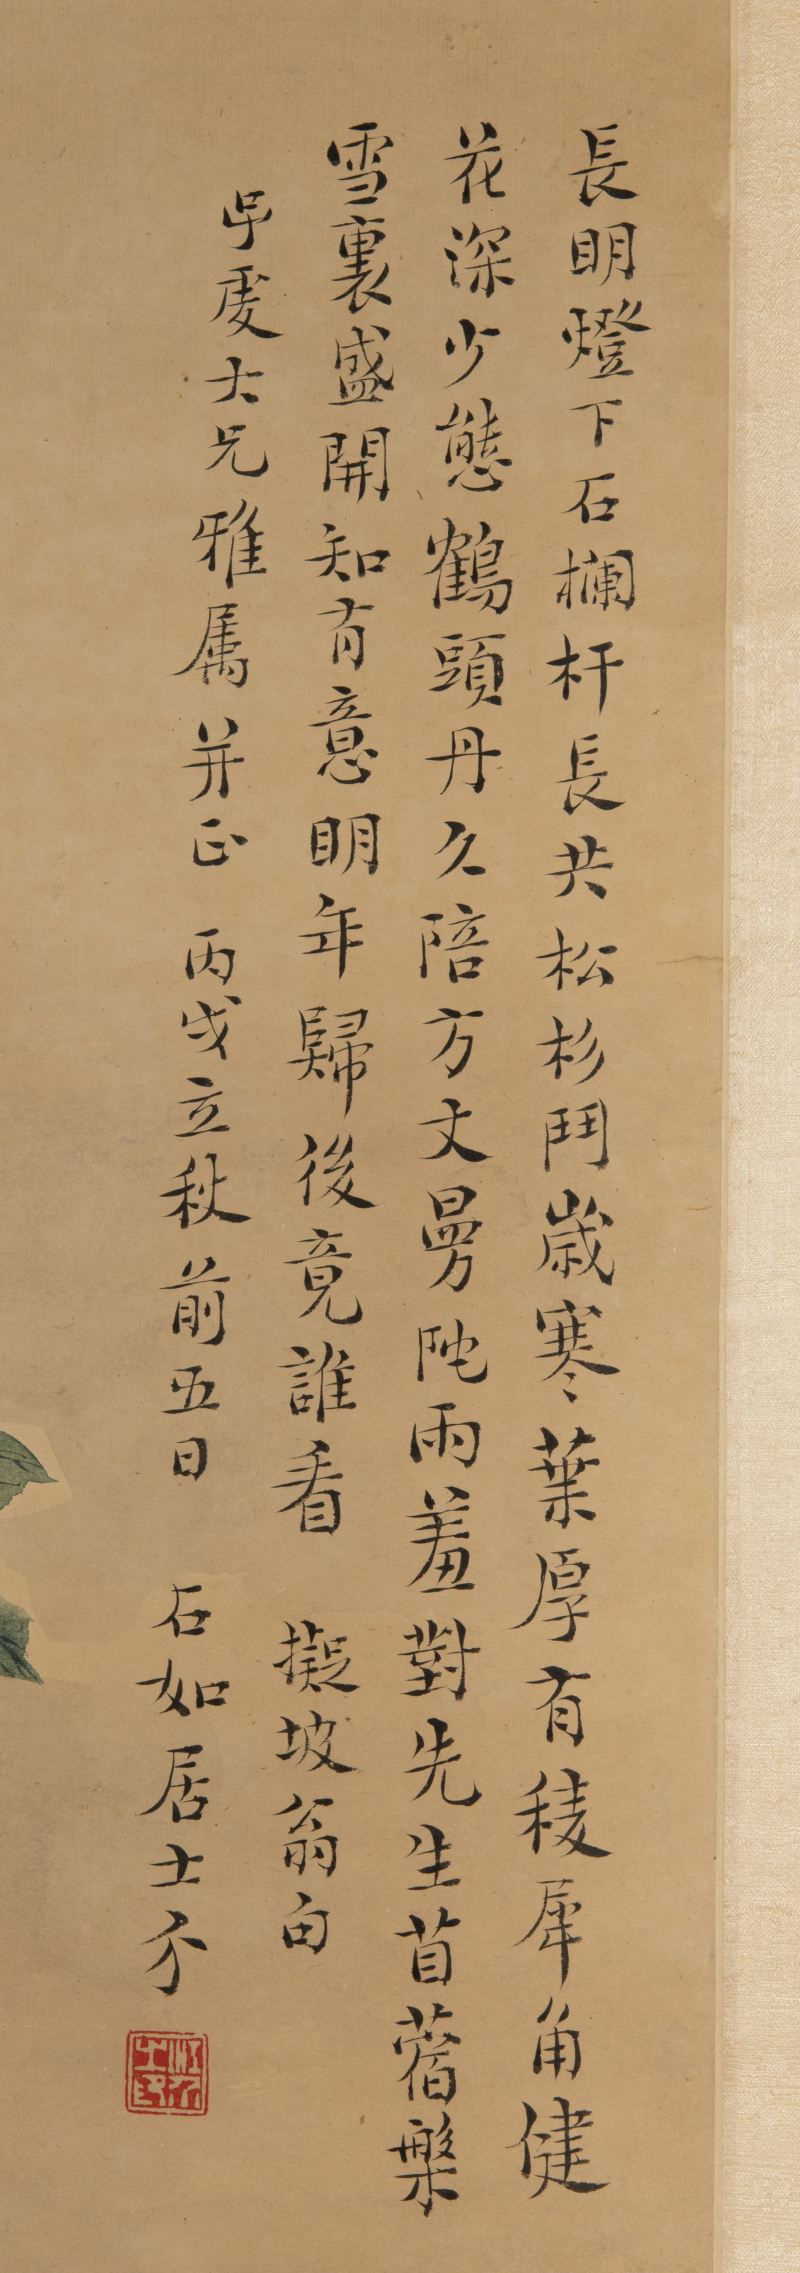 長明燈下石欄杆長共松杉鬥歲寒葉厚有稜犀角健
花深少態鶴頭丹久陪方丈曼陀雨羞對先生苜蓿槃
雪裏盛開知有意明年歸後竟誰看 擬坡翁句
大兄雅屬并正 丙戌立秋前五日 石如居士